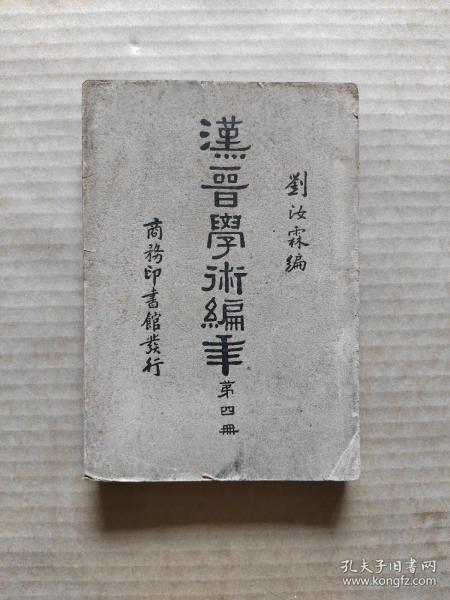 劉汝霖編
漢晉學術編年
第四冊
商務印書館發行
孔夫子旧书网
www.kongfz.com